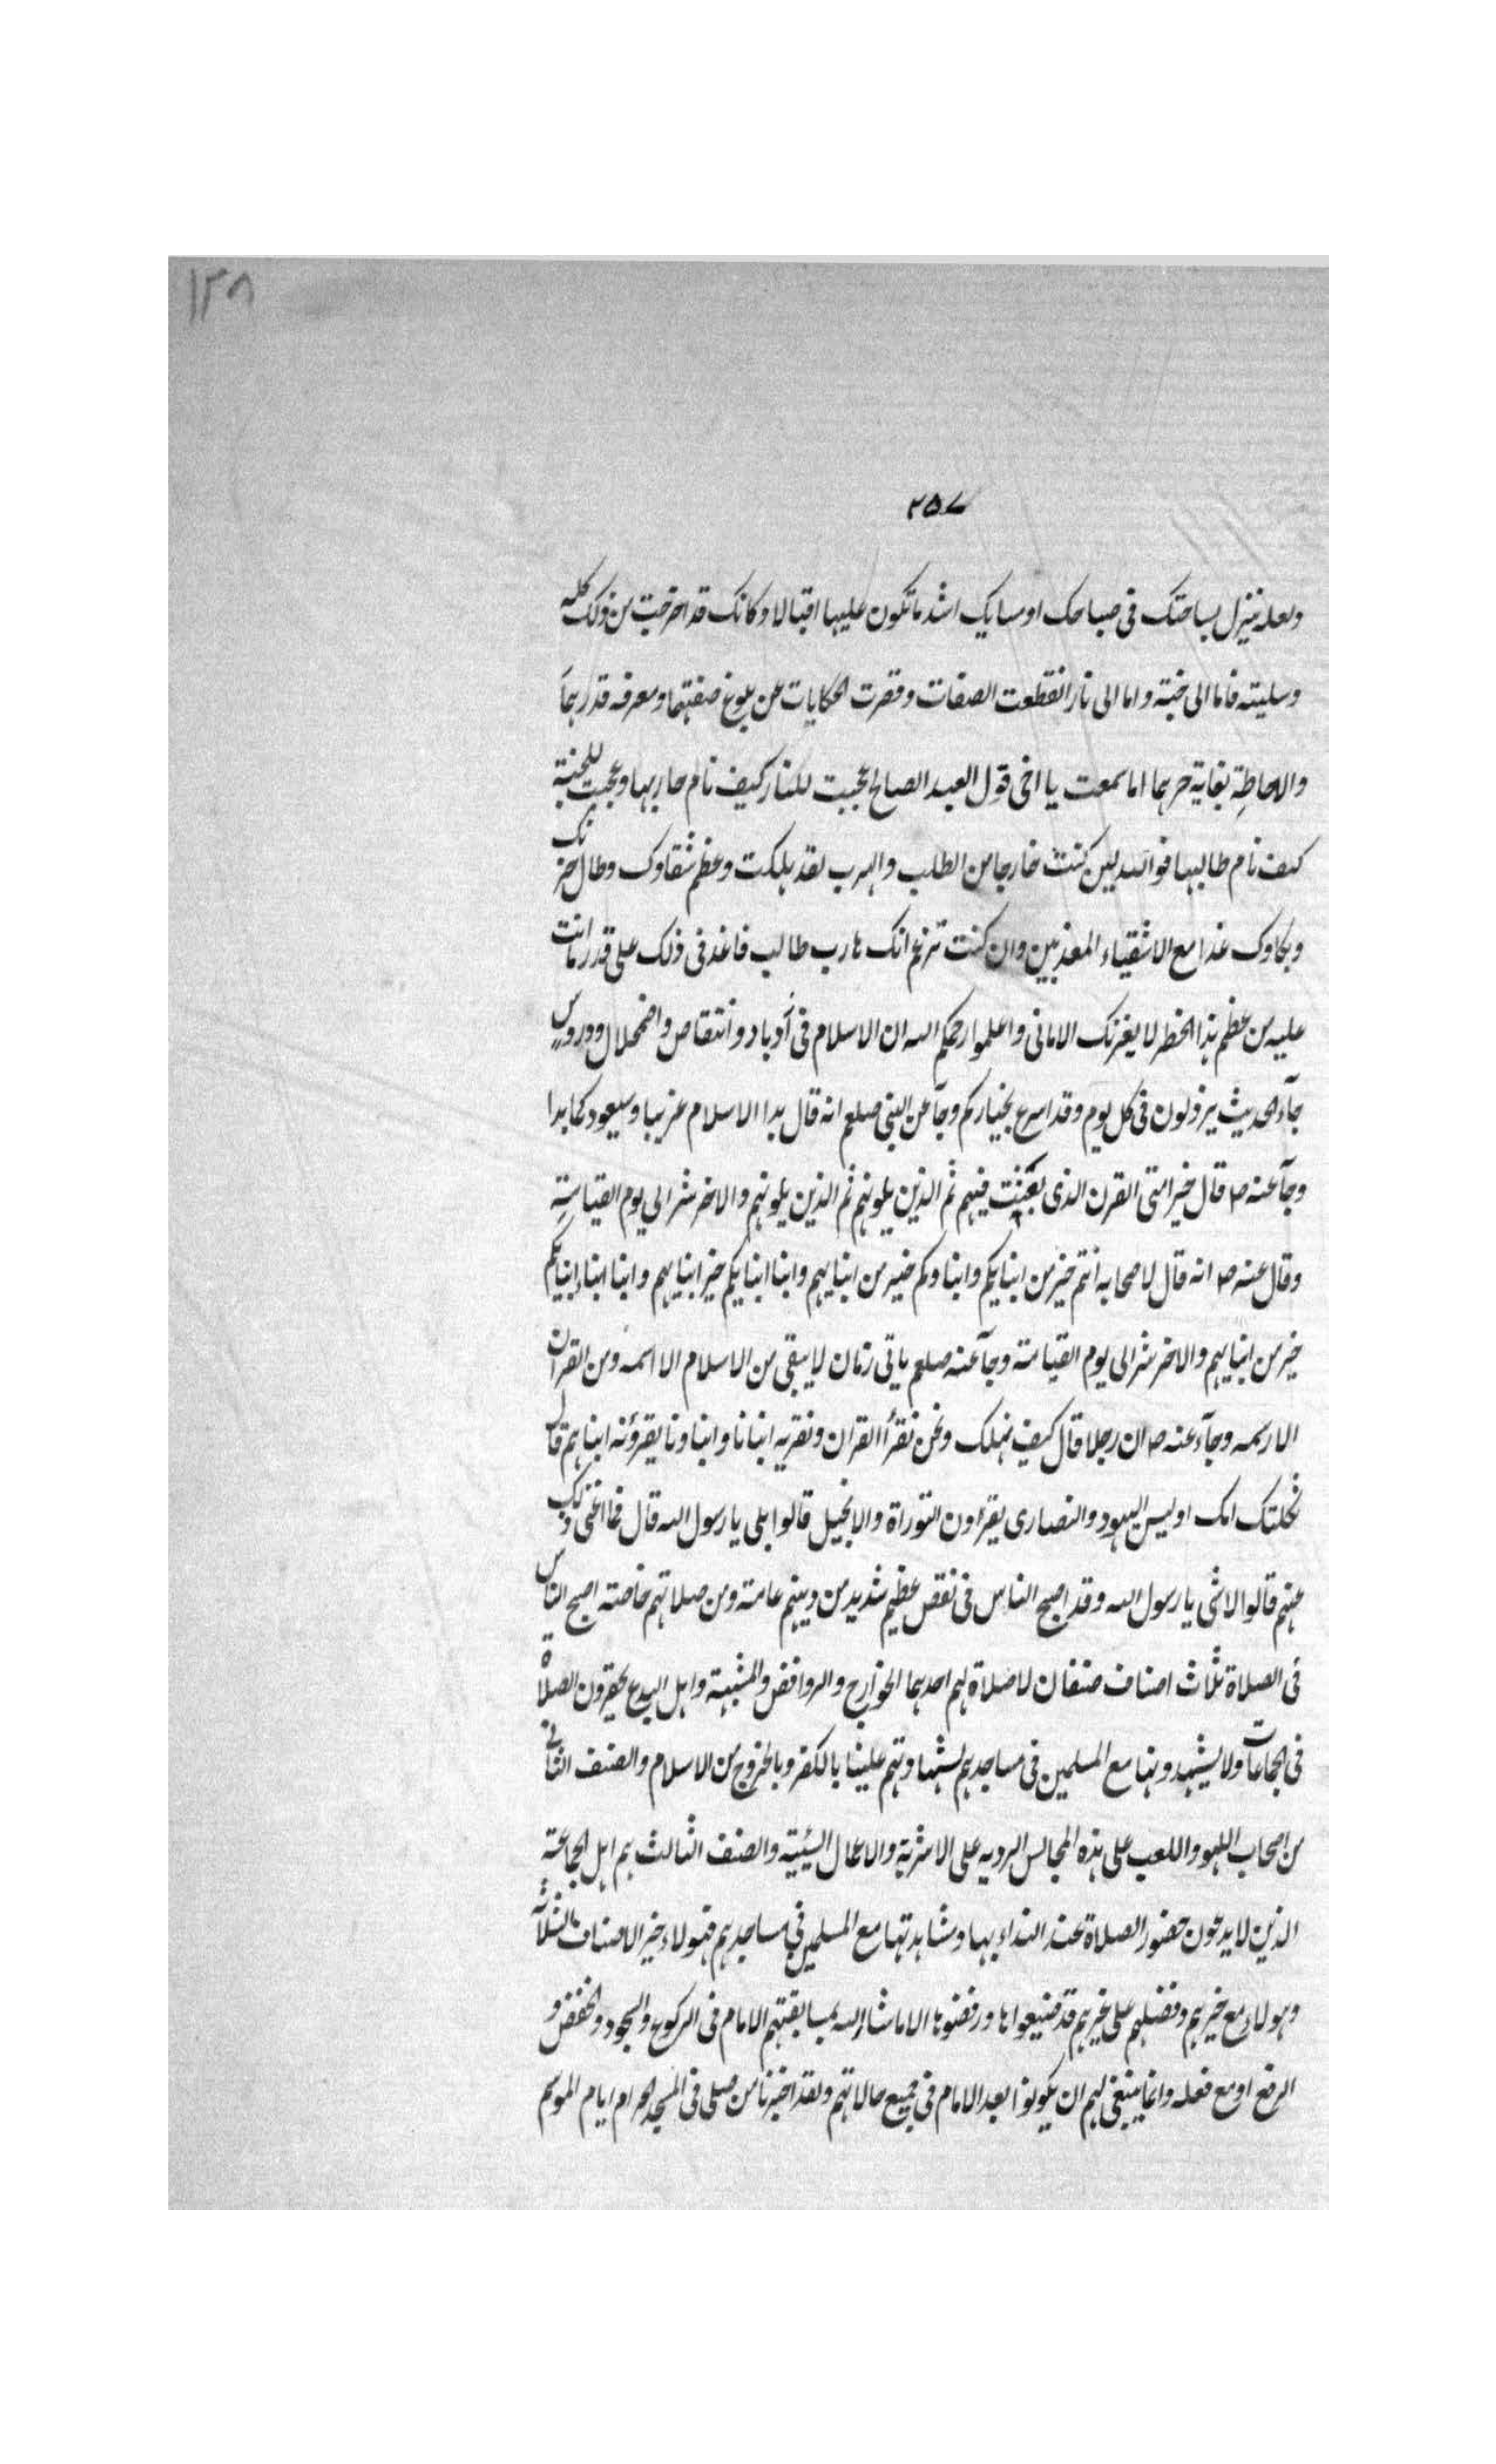 ١٢٨
٢٥٧
ولعله ينزل بساحتك فى صباحك او مسايك اشد ما تكون عليها اقبالا وكانك قد اخرجت من ذلك كله
وسلبته فاما الى جنة واما الى نار انقطعت الصفات وقصرت الحكايات عن بلوغ صفتهما ومعرفه قدرهما
والاحاطة بغاية خبرهما اما سمعت يا اخى قول العبد الصالح عجبت للنار كيف نام هاربها وعجبت للجنة
كيف نام طالبها فوالله لين كنت خارجا من الطلب والهرب لقد هلكت وعظم شقاوك وطال حزنك
وبكاوك غدا مع الاشقياء المعذبين وان كنت تزعم انك هارب طالب فاغد فى ذلك على قدر ما انت
عليه من عظم هذا الخطر لا يغرنك الامانى واعلموا رحمكم الله ان الاسلام فى ادبار وانتقاص واضمحلال ودروس
جاء الحديث يرذلون فى كل يوم وقد اسرع بخياركم وجآ عن النبى صلعم انه قال بدا الاسلام غريبا وسيعود كما بدا
وجآ عنه ص قال خير امتى القرن الذى بعثت فيهم ثم الذين يلونهم ثم الذين يلونهم والاخر شر الى يوم القيامة
وقال عنه ص انه قال لاصحابه انتم خير من ابنايكم وابناوكم خير من ابنايهم وابنا ابنايكم خير ابنايهم وابنا ابناء ابنايكم
خير من ابنايهم والاخر شر الى يوم القيامة وجآ عنه صلعم ياتى زمان لا يبقى من الاسلام الا اسمه ومن القران
الا رسمه وجآء عنه ص ان رجلا قال كيف نهلك ونحن نقرأ القران ونقريه ابنانا وابناونا يقرؤنه ابناهم قال
ثكلتك امك اوليس اليهود والنصارى يقرءون التوراة والانجيل قالوا بلى يا رسول الله قال فما اغنى ذلك
عنهم قالوا لا شى يا رسول الله وقد اصبح الناس فى نقص عظيم شديد من دينهم عامة ومن صلاتهم خاصة اصبح الناس
فى الصلاة ثلاث اصناف صنفان لا صلاة لهم احدهما الخوارج والروافض والمشبهة واهل البدع يحقرون الصلاة
فى الجماعات ولا يشهدونها مع المسلمين فى مساجدهم لشهادتهم علينا بالكفر وبالخروج من الاسلام والصنف الثانى
من اصحاب اللهو واللعب على هذه المجالس الرديه على الاشربة والاعمال السيئية والصنف الثالث هم اهل الجماعة
الذين لا يدعون حضور الصلاة عند النداء بها ومشاهدتها مع المسلمين فى مساجدهم فهولاء خير الاصناف الثلاثة
وهولاء مع خيرهم وفضلهم على غيرهم قد ضيعوها ورفضوها الا ما شاء الله بمسابقتهم الامام فى الركوع والسجود والخفض و
الرفع او مع فعله وانما ينبغى لهم ان يكونوا بعد الامام فى جميع حالاتهم ولقد اخبرنا من صلى فى المسجد الحرام ايام الموسم